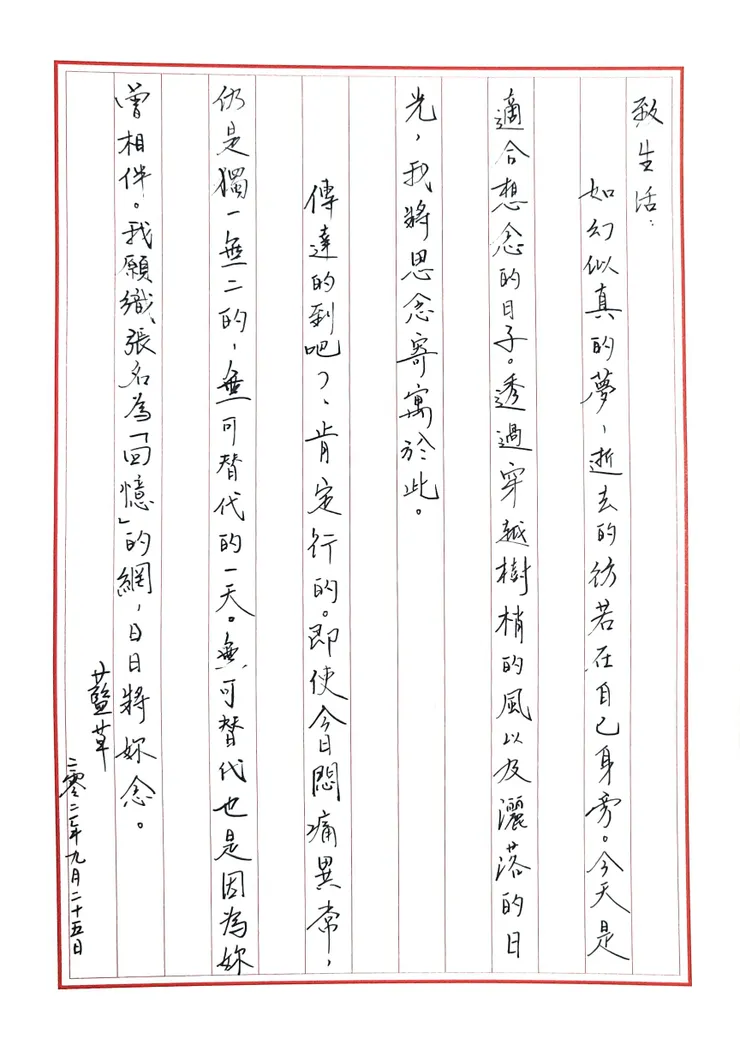 致生活：
如幻似真的夢，逝去的彷若在自己身旁。今天是
適合想念的日子。透過穿越樹梢的風以及灑落的日
光，我將思念寄寓於此。
傳達的到吧？、肯定行的。即使今日悶痛異常，
仍是獨一無二的，無可替代的一天。無可替代也是因為妳
曾相伴。我願織張名為「回憶」的網，日日將妳念。
藍草
二零二二年九月二十五日